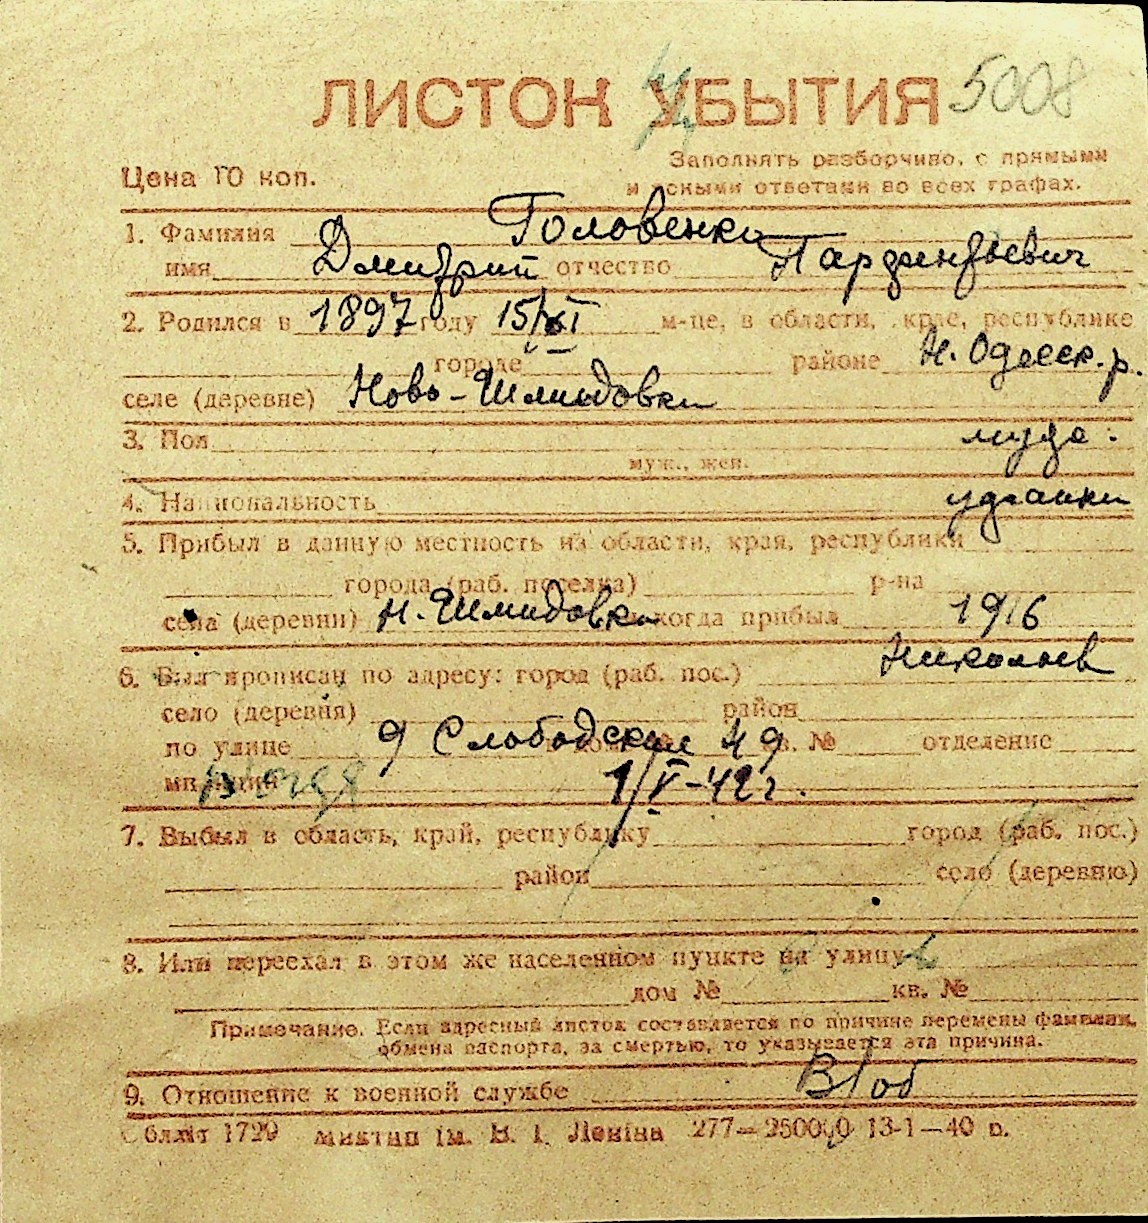 ЛИСТОК УБЫТИЯ 5008
Цена 10 коп.
Заполнять разборчиво, с прямыми
и ясными ответами во всех графах.
1. Фамилия Головенко
имя Дмитрий отчество Парфентьевич
2. Родился в 1897 году 15/XI м-це, в области, крае, республике
городе районе Н. Одесск. р.
селе (деревне) Ново-Шмидовка
3. Пол муж.
муж., жен.
4. Национальность
5. Прибыл в данную местность из области, края, республики
города (раб. поселка) р-на
села (деревни) Н. Шмидовка и когда прибыл 1916
6. Был прописан по адресу: город (раб. пос.) Николаев
село (деревня) район
по улице 9 Слободская 49 кв. № отделение
милиции 1/V-42 г.
7. Выбыл в область, край, республику город (раб. пос.)
район село (деревню)
8. Или переехал в этом же населенном пункте на улицу
дом № кв. №
Примечание. Если адресный листок составляется по причине перемены фамилии,
обмена паспорта, за смертью, то указывается эта причина.
9. Отношение к военной службе В/об
Облліт 1729 Миктип ім. В. І. Леніна 277—250000 13-1—40 р.